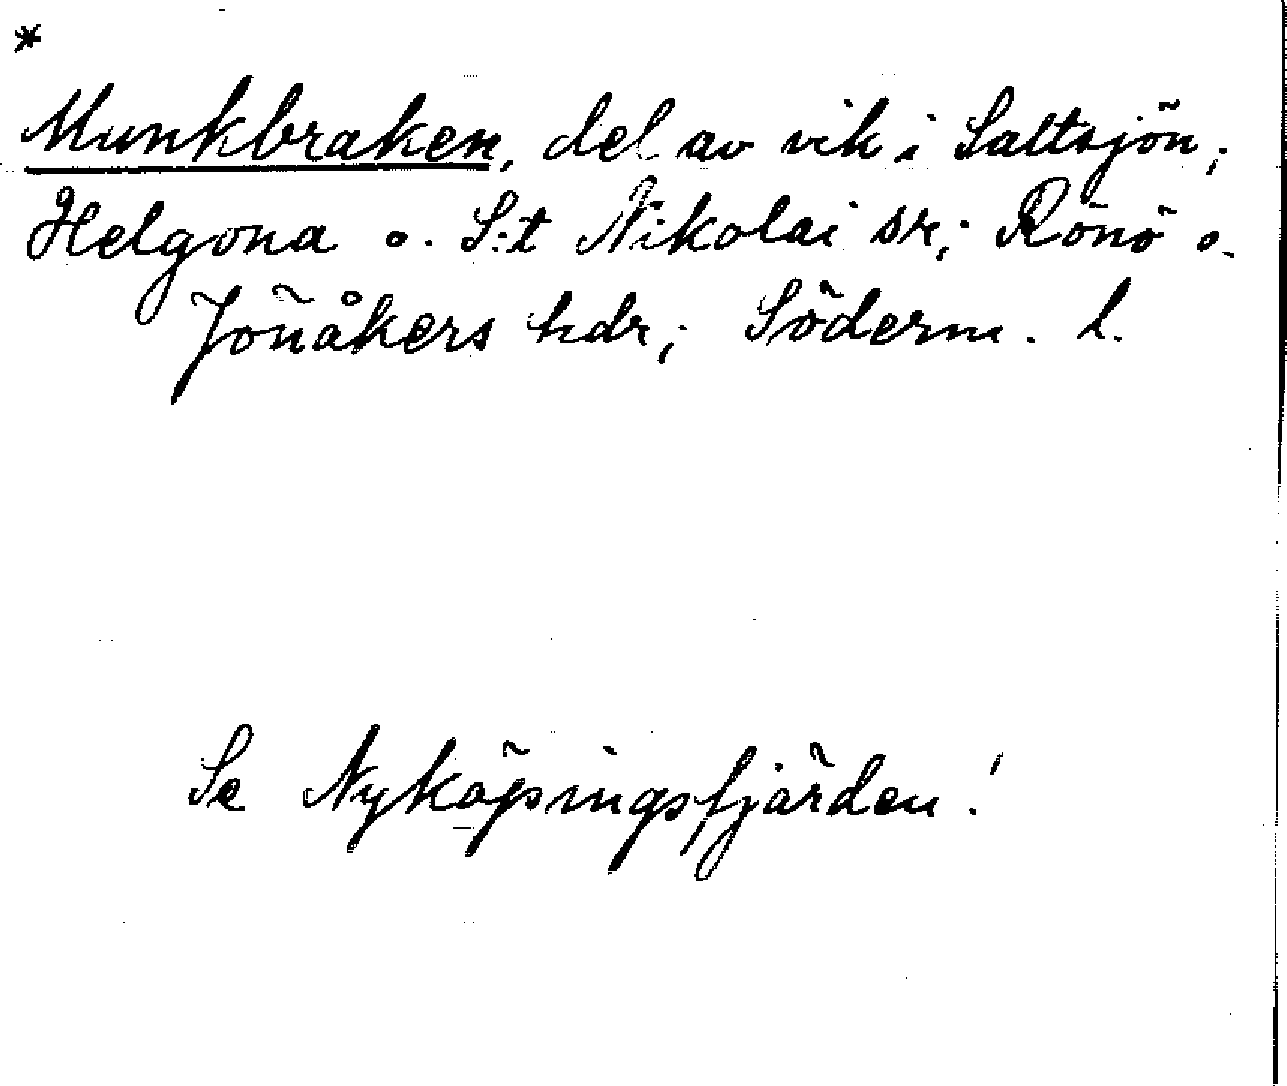 *
Munkbraken, del av vik i Saltsjön;
Helgona o. S:t Nikolai sr; Rönö o.
Jönåkers hdr; Söderm. l.
Se Nyköpingsfjärden!